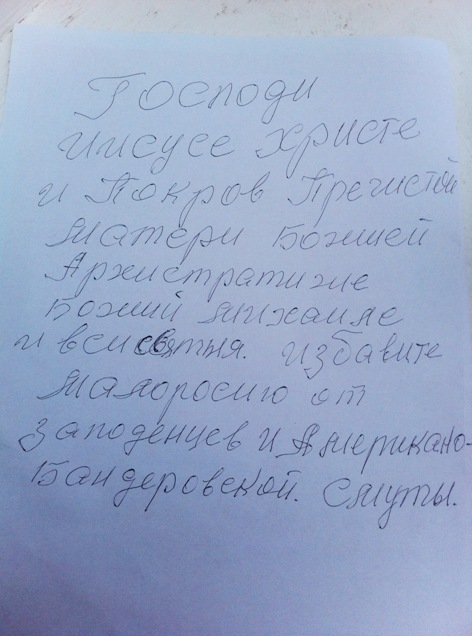 Господи
Иисусе Христе
и Покров Пречистой
Матери Божией
Архистратиже
Божий Михаиле
и вси святыя. Избавите
Малоросию от
Заподенцев и Американо-
Бандеровской. Смуты.